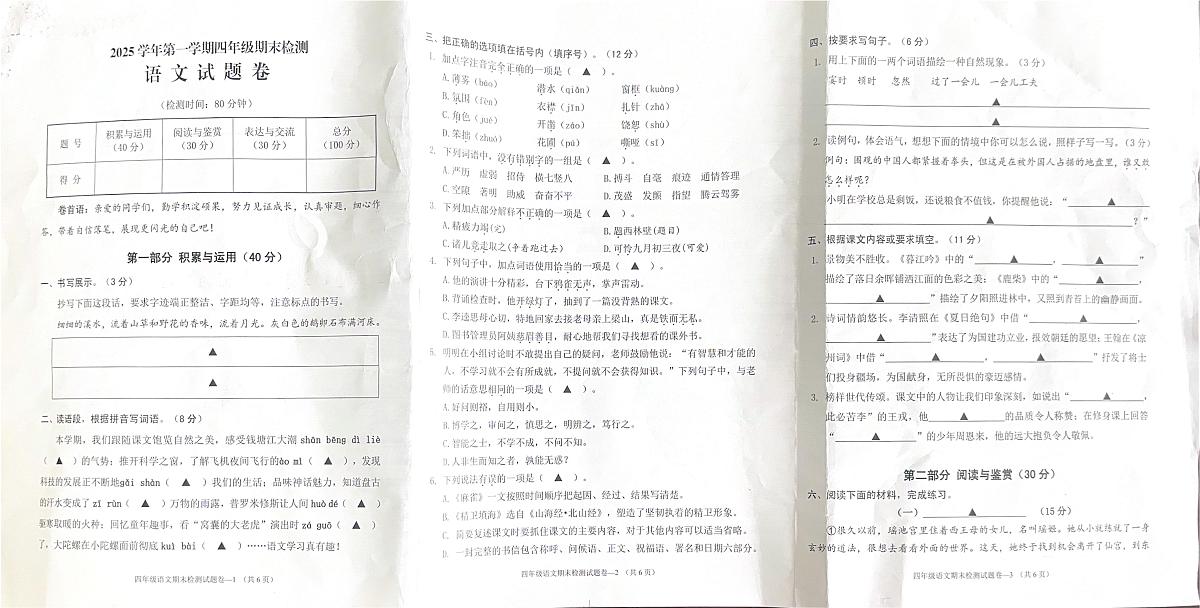 2025学年第一学期四年级期末检测
语文试题卷
（检测时间：80分钟）
题号 积累与运用（40分） 阅读与鉴赏（30分） 表达与交流（30分） 总分（100分）
得分
卷首语：亲爱的同学们，勤学积淀硕果，努力见证成长，认真审题，细心作
答，带着自信落笔，展现更闪光的自己吧！
第一部分 积累与运用（40分）
一、书写展示。（3分）
抄写下面这段话，要求字迹端正整洁、字距均等，注意标点的书写。
细细的溪水，流着山草和野花的香味，流着月光。灰白色的鹅卵石布满河床。
▲
▲
二、读语段，根据拼音写词语。（8分）
本学期，我们跟随课文饱览自然之美，感受钱塘江大潮 shān bēng dì liè
（ ▲ ）的气势；推开科学之窗，了解飞机夜间飞行的ào mì（ ▲ ），发现
科技的发展正不断地gǎi shàn（ ▲ ）我们的生活；品味神话魅力，知道盘古
的汗水变成了 zī rùn（ ▲ ）万物的雨露，普罗米修斯让人间 huò dé（ ▲ ）
驱寒取暖的火种；回忆童年趣事，看“窝囊的大老虎”演出时 zá guō（ ▲ ）
了，大陀螺在小陀螺面前彻底 kuì bài（ ▲ ）……语文学习真有趣！
四年级语文期末检测试题卷—1 （共6页）
三、把正确的选项填在括号内（填序号）。（12分）
1. 加点字注音完全正确的一项是（ ▲ ）。
A.薄雾（báo） 潜水（qiǎn） 窗框（kuàng）
B.氛围（fèn） 衣襟（jīn） 扎针（zhā）
C.角色（jué） 开凿（záo） 饶恕（shù）
D.笨拙（zhuó） 花圃（pú） 嘶哑（sī）
2. 下列词语中，没有错别字的一组是（ ▲ ）。
A.严历 虚弱 招侍 横七竖八 B.搏斗 自毫 痕迹 通情答理
C.空隙 著明 助威 奋奋不平 D.茂盛 发颤 指望 腾云驾雾
3. 下列加点部分解释不正确的一项是（ ▲ ）。
A.精疲力竭(光) B.题西林壁(题目)
C.诸儿竞走取之(争着跑过去) D.可怜九月初三夜(可爱)
4. 下列句子中，加点词语使用恰当的一项是（ ▲ ）。
A.他的演讲十分精彩，台下鸦雀无声，掌声雷动。
B.背诵检查时，他开绿灯了，抽到了一篇没背熟的课文。
C.李逵思母心切，特地回家去接老母亲上梁山，真是铁面无私。
D.图书管理员阿姨慈眉善目，耐心地帮我们寻找想看的课外书。
5. 明明在小组讨论时不敢提出自己的疑问，老师鼓励他说：“有智慧和才能的
人，不学习就不会有所成就，不提问就不会获得知识。”下列句子中，与老
师的话意思相同的一项是（ ▲ ）。
A.好问则裕，自用则小。
B.博学之，审问之，慎思之，明辨之，笃行之。
C.智能之士，不学不成，不问不知。
D.人非生而知之者，孰能无惑？
6. 下列说法有误的一项是（ ▲ ）。
A.《麻雀》一文按照时间顺序把起因、经过、结果写清楚。
B.《精卫填海》选自《山海经•北山经》，塑造了坚韧执着的精卫形象。
C. 简要复述课文时要抓住课文的主要内容，对于其他内容可以适当省略。
D. 一封完整的书信包含称呼、问候语、正文、祝福语、署名和日期六部分。
四年级语文期末检测试题卷—2 （共6页）
四、按要求写句子。（6分）
1. 用上下面的一两个词语描绘一种自然现象。（3分）
霎时 顿时 忽然 过了一会儿 一会儿工夫
▲
▲
2. 读例句，体会语气，想想下面的情境中你可以怎么说，照样子写一写。（3分）
例句：围观的中国人都紧握着拳头，但这是在被外国人占据的地盘里，谁又敢
怎么样呢？
小明在学校总是剩饭，还说粮食不值钱，你提醒他说：“ ▲
▲ ？”
五、根据课文内容或要求填空。（11分）
1. 景物美不胜收。《暮江吟》中的“ ▲ ， ▲ ”
描绘了落日余晖铺洒江面的色彩之美；《鹿柴》中的“ ▲ ，
▲ ”描绘了夕阳照进林中，又照到青苔上的幽静画面。
2. 诗词情韵悠长。李清照在《夏日绝句》中借“ ▲ ，
▲ ”表达了为国建功立业，报效朝廷的愿望；王翰在《凉
州词》中借“ ▲ ， ▲ ”抒发了将士
们投身疆场，为国献身，无所畏惧的豪迈感情。
3. 榜样世代传颂。课文中的人物让我们印象深刻，如说出“ ▲ ，
此必苦李”的王戎，他 ▲ 的品质令人称赞；在修身课上回答
“ ▲ ”的少年周恩来，他的远大抱负令人敬佩。
第二部分 阅读与鉴赏（30分）
六、阅读下面的材料，完成练习。
（一） ▲ （15分）
①很久以前，瑶池宫里住着西王母的女儿，名叫瑶姬。她从小就练就了一身
玄妙的道法，很想去看看外面的世界。这天，她终于找到机会离开了仙宫，到东
四年级语文期末检测试题卷—3 （共6页）